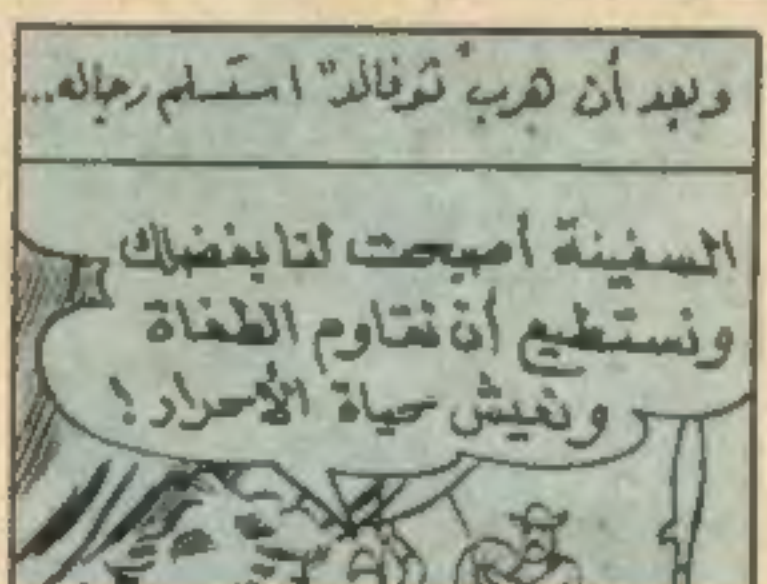 وبعد أن هرب "توفالد" استسلم رجاله...
السفينة أصبحت لنا بفضلك
ونستطيع أن نقاوم الطغاة
ونعيش حياة الأحرار!